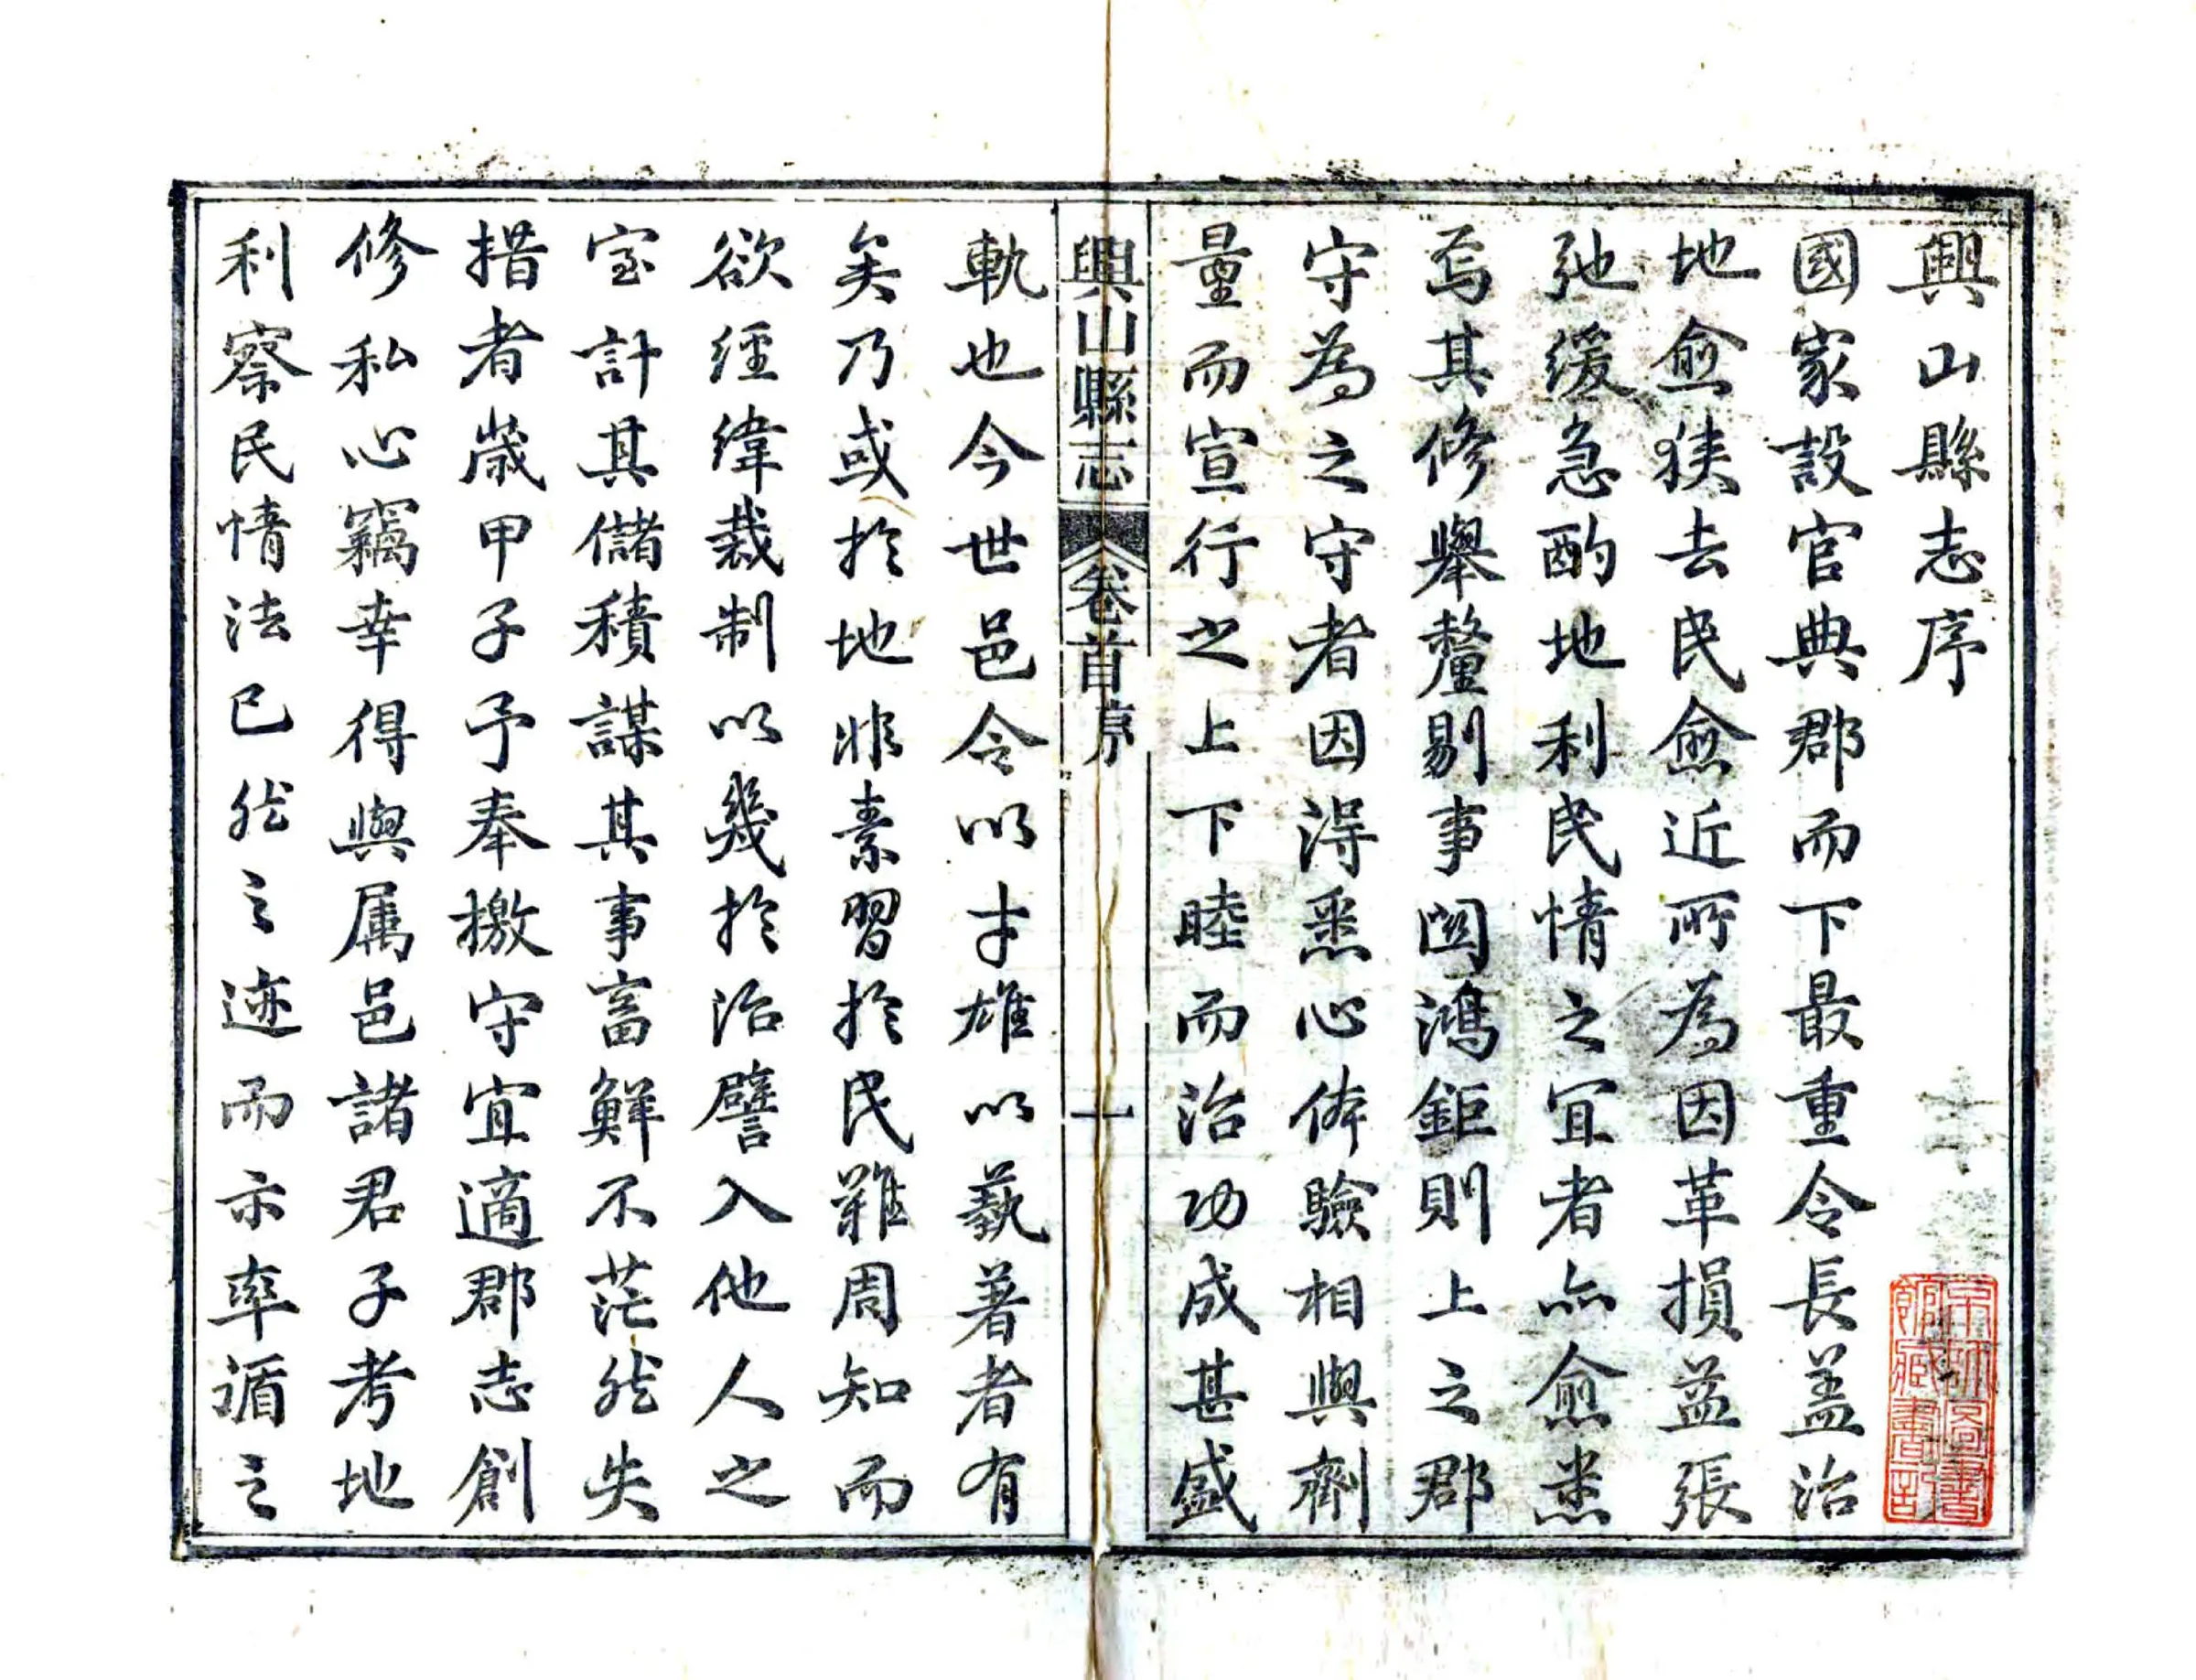 興山縣志序
國家設官典郡而下最重令長盖治
地愈狹去民愈近所為因革損益張
弛緩急酌地利民情之宜者亦愈悉
焉其修舉釐剔事関鴻鉅則上之郡
守為之守者因得悉心体驗相與劑
量而宣行之上下睦而治功成甚盛
興山縣志 卷首序 一
軌也今世邑令以才雄以藝著者有
矣乃或於地非素習於民難周知而
欲經緯裁制以幾於治譬入他人之
室計其儲積謀其事畜鮮不茫然失
措者歲甲子予奉檄守宜適郡志創
修私心竊幸得與属邑諸君子考地
利察民情法已然之迹而示率循之